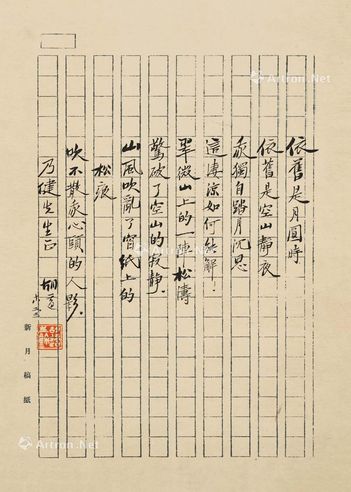 依舊是月圓時
依舊是空山靜夜
我獨自踏月沉思
這凄涼如何能解
翠微山上的一陣松濤
驚破了空山的寂靜．
山風吹亂了窗紙上的
松痕
吹不散我心頭的人影．
乃健先生正
胡適
新月稿紙
Artron.Net
Artron.Net